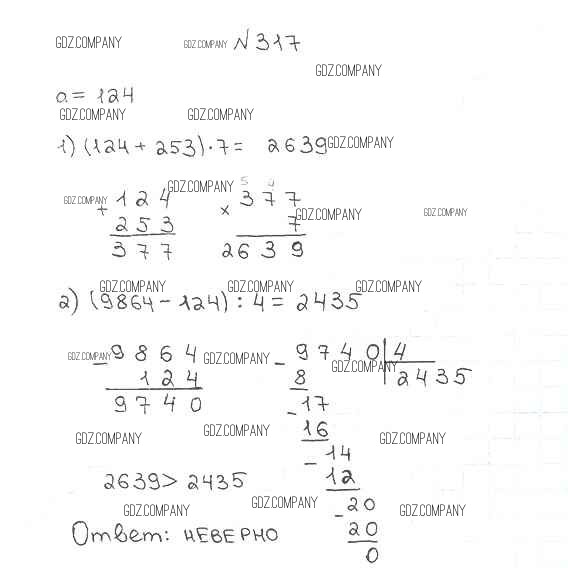 GDZ.COMPANY GDZ.COMPANY N317
GDZ.COMPANY
a = 124
GDZ.COMPANY GDZ.COMPANY
1) (124 + 253) · 7 = 2639 GDZ.COMPANY
GDZ.COMPANY 5 4
GDZ.COMPANY + 124 × 377 GDZ.COMPANY GDZ.COMPANY
253 7
377 2639
GDZ.COMPANY GDZ.COMPANY GDZ.COMPANY
2) (9864 - 124) : 4 = 2435
GDZ.COMPANY - 9864 GDZ.COMPANY - 9740 | 4
124 8 GDZ.COMPANY 2435
9740 - 17
GDZ.COMPANY GDZ.COMPANY 16 GDZ.COMPANY
- 14
2639 > 2435 12
GDZ.COMPANY GDZ.COMPANY - 20 GDZ.COMPANY
Ответ: НЕВЕРНО 20
0